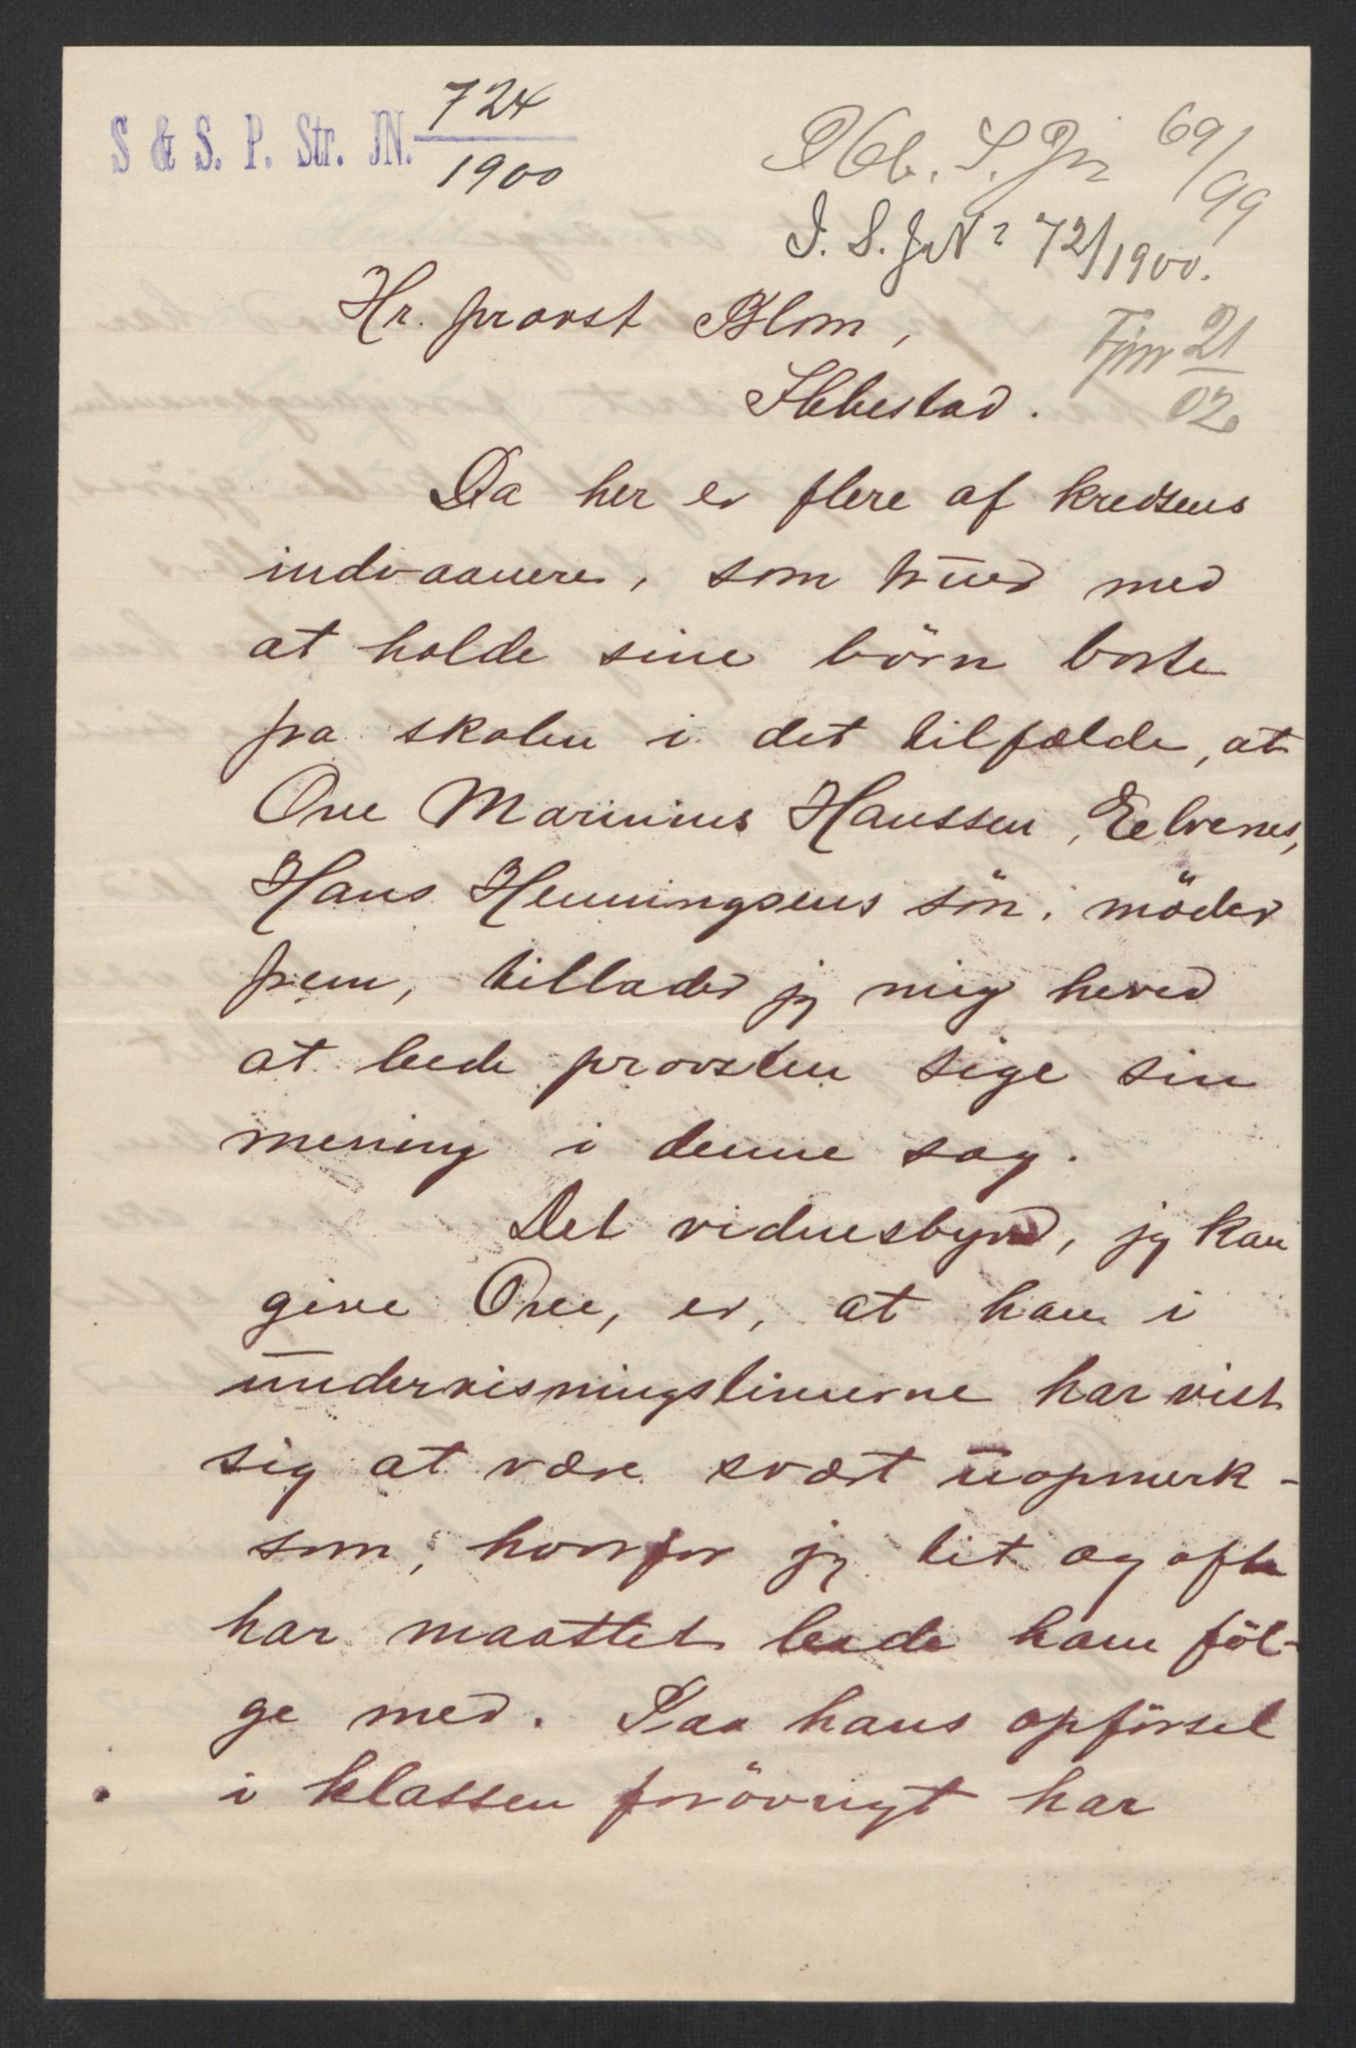 S & S. P. Str. JN. 724/1900
Ibb. S. Jn 69/99
I. S. JN: 72/1900.
Hr. provst Blom,
Fjnr 21/02
Ibbestad.
Da her er flere af kredsens
indvaanere, som truer med
at holde sine börn borte
fra skolen i det tilfælde, at
Ove Marinius Hanssen, Elvenes,
Hans Henningsens sön, möder
frem, tillader jeg mig herved
at bede provsten sige sin
mening i denne sag.
Det vidnesbyrd, jeg kan
give Ove, er, at han i
undervisningstimerne har vist
sig at være svært uopmerk-
som, hvorfor jeg tit og ofte
har maattet bede ham föl-
ge med. Paa hans opförsel
i klassen forövrigt har